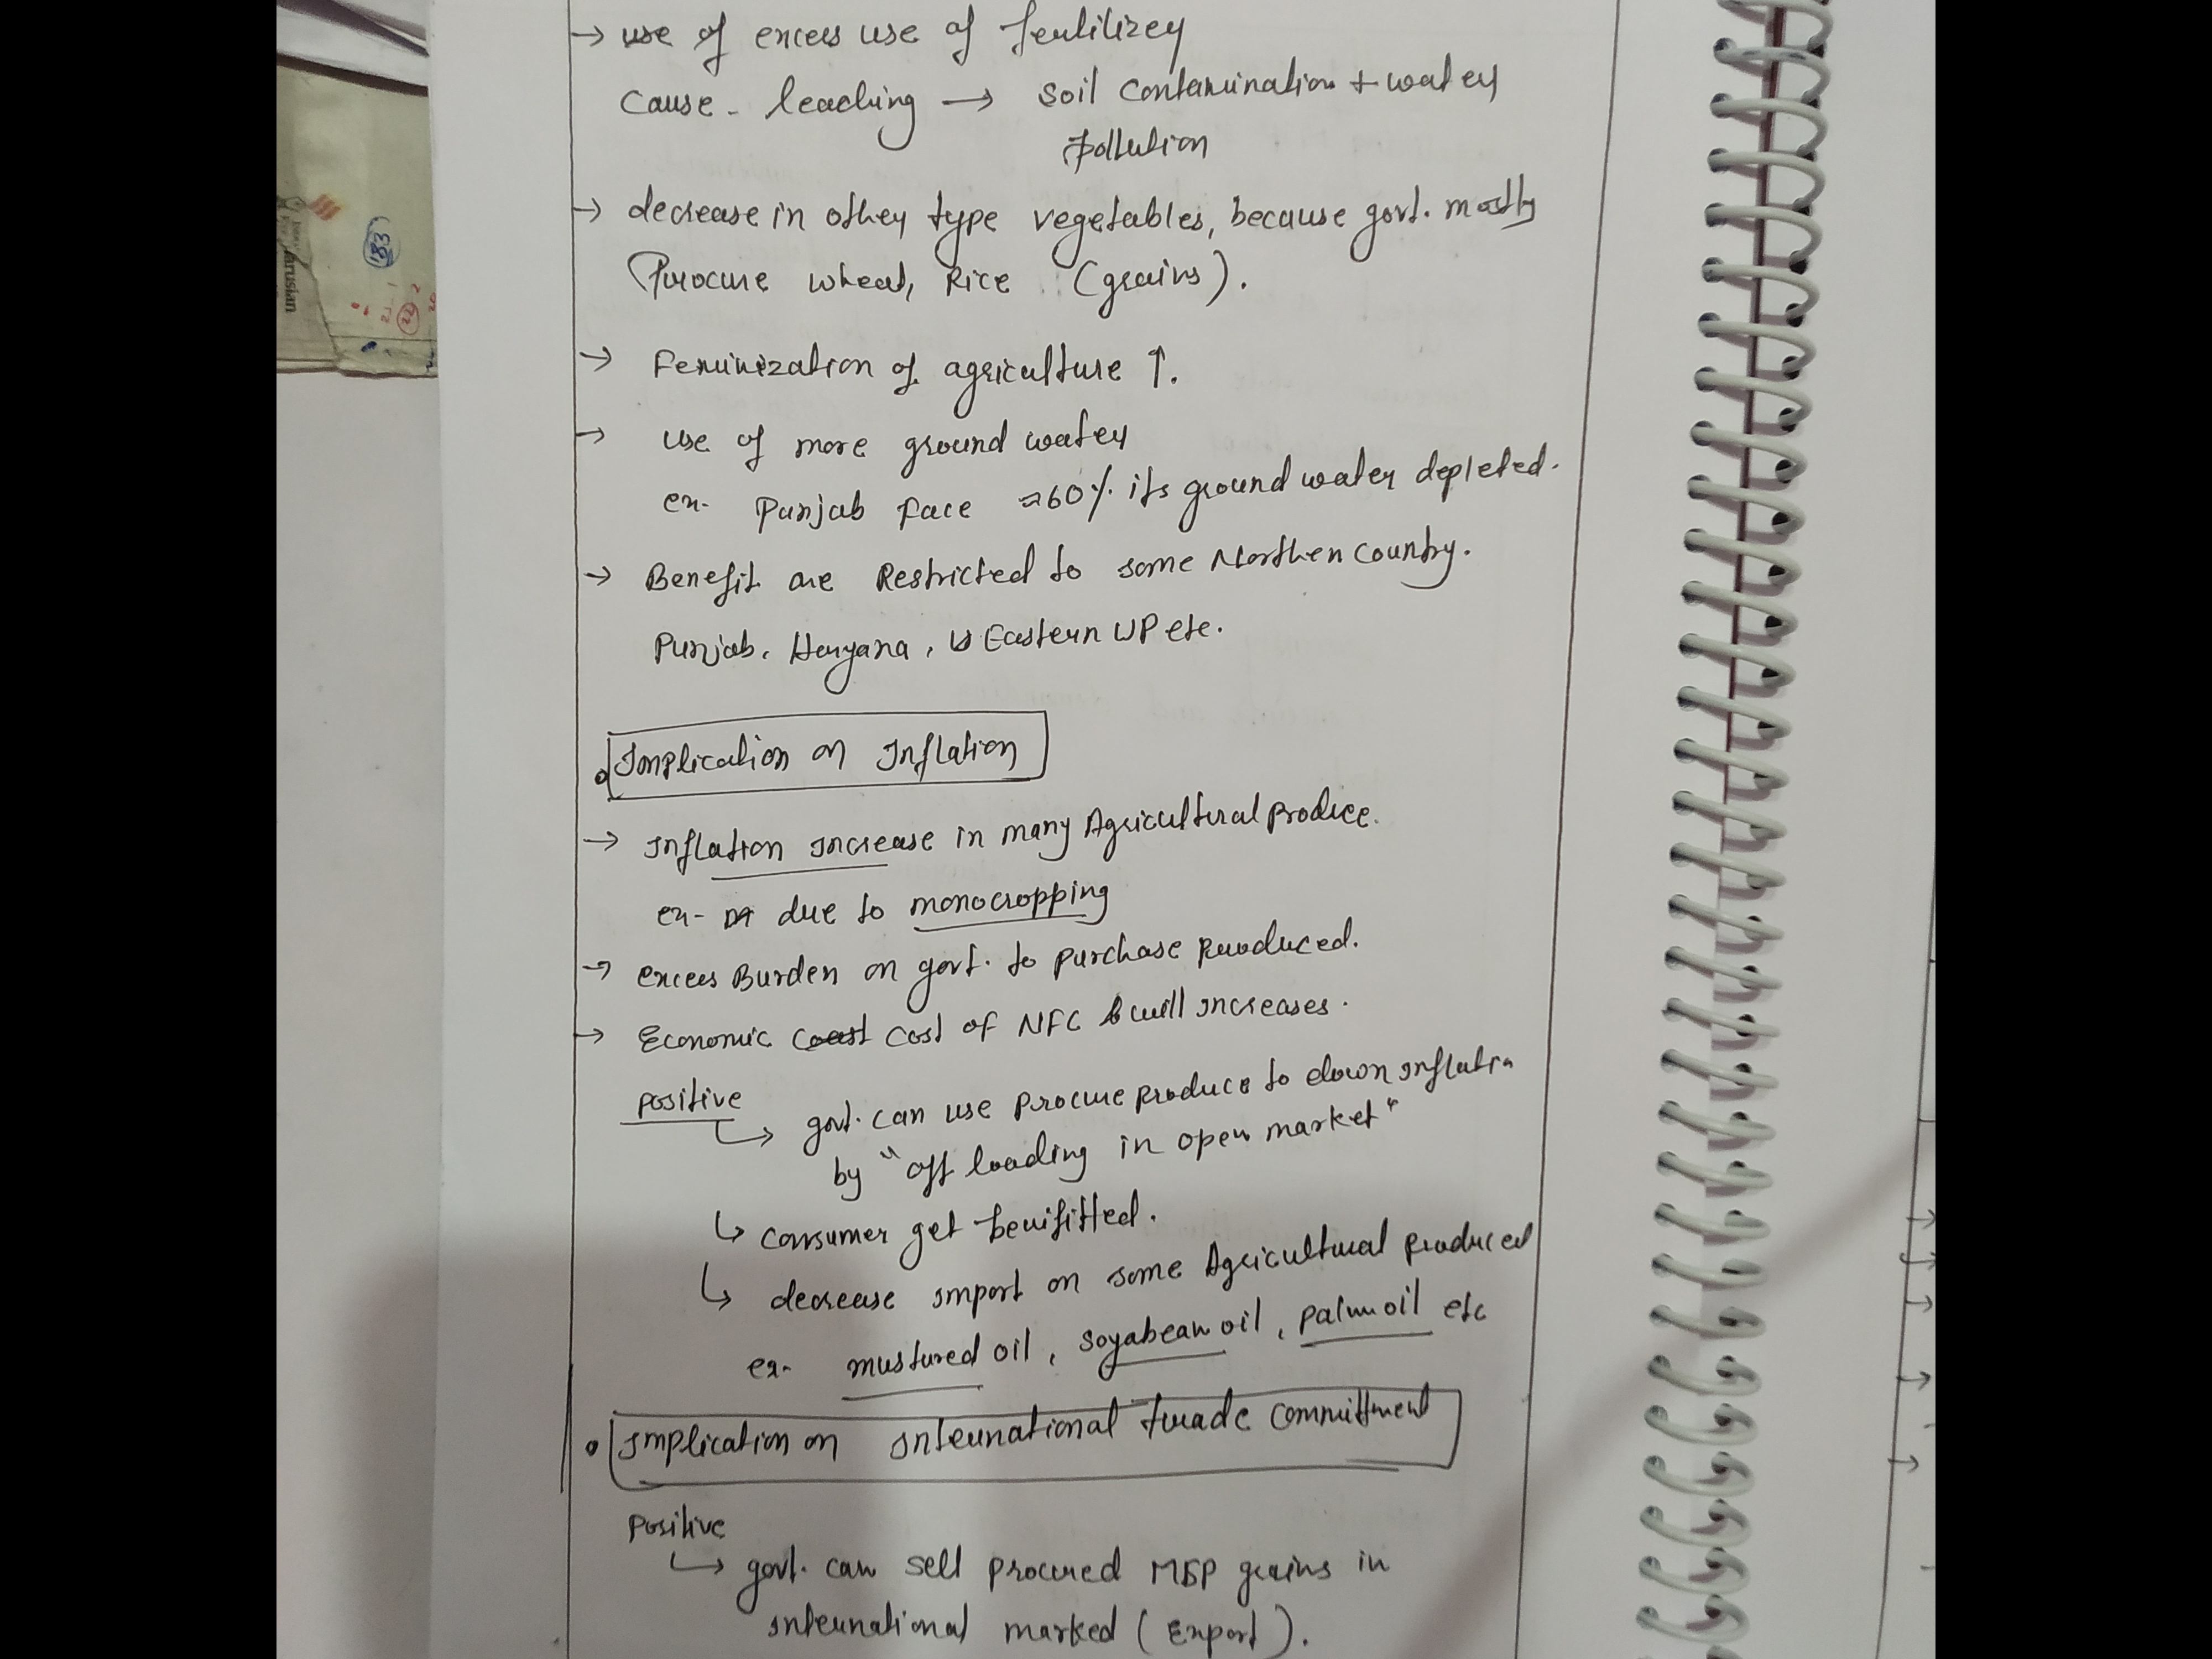 → use of excess use of fertilizer
cause - leaching → soil contamination + water
pollution
→ decrease in other type vegetables, because govt. mostly
Procure wheat, Rice (grains).
→ Feminization of agriculture ↑.
→ use of more ground water
ex- Punjab face ≈60% its ground water depleted.
→ Benefit are Restricted to some Northen country.
Punjab, Haryana, Eastern UP etc.
• Implication on Inflation
→ Inflation increase in many Agricultural produce.
ex- due to monocropping
→ excess Burden on govt. to purchase produced.
→ Economic cost of NFC will increases.
positive
↳ govt. can use procure produce to down inflatin
by "off loading in open market"
↳ consumer get benifitted.
↳ decrease import on some Agricultural produced
ex- mustured oil, soyabean oil, palm oil etc
• Implication on international trade committment
Positive
↳ govt. can sell procured MSP grains in
international marked (Export).
183
22
arusian